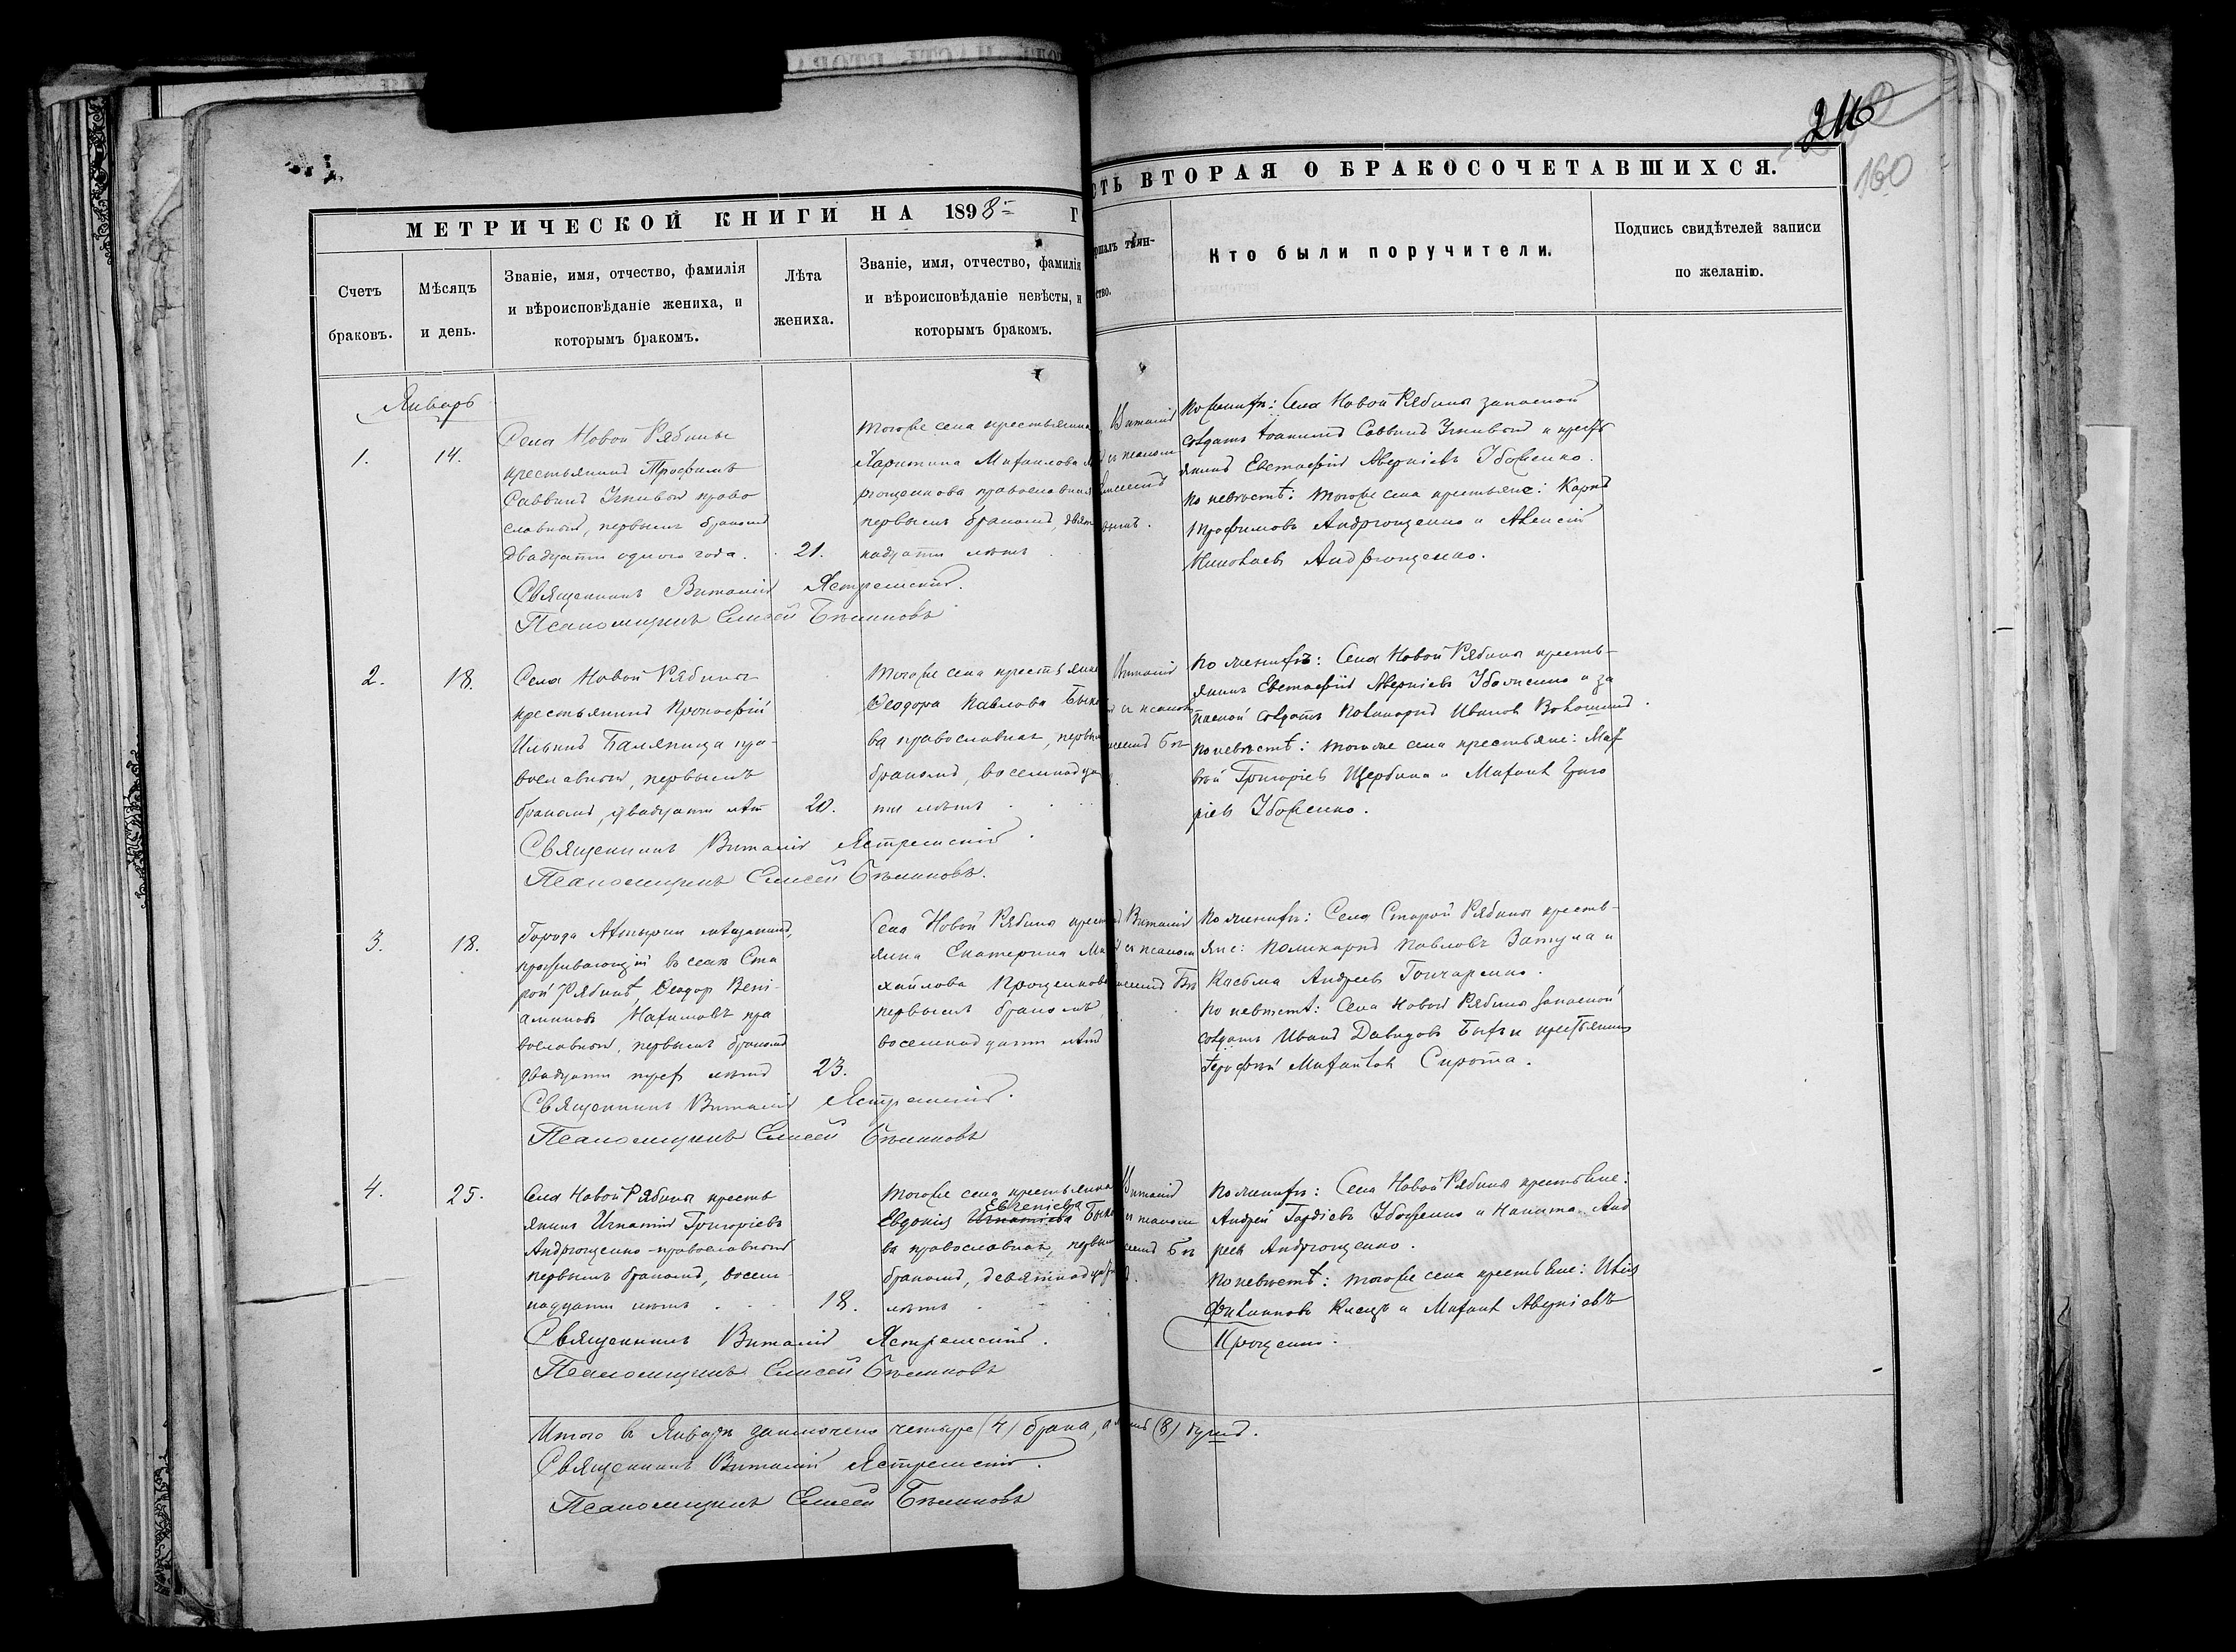 216
160
МЕТРИЧЕСКОЙ КНИГИ НА 1898 Г
СТЬ ВТОРАЯ О БРАКОСОЧЕТАВШИХСЯ.
Счетъ браковъ.
Мѣсяцъ и день.
Званіе, имя, отчество, фамилія
и вѣроисповѣданіе жениха, и
которымъ бракомъ.
Лѣта
жениха.
Званіе, имя, отчество, фамилія
и вѣроисповѣданіе невѣсты, и
которымъ бракомъ.
ршалъ таин-
ство.
Кто были поручители.
Подпись свидѣтелей записи
по желанію.
Январь
1.
14.
Села Новой Рябины
крестьянинъ Трофимъ
Саввинъ право
славный, первымъ бракомъ
двадцати одного года.
21.
Тогоже села крестьянка
Харитина Михаилова
рющенкова православная
первымъ бракомъ, девят
надцати лѣтъ
Виталій
По женихѣ: Села Новой Рябины запасной
солдатъ Іоаннъ Саввинъ и крест
янинъ Евстафій Аверкіевъ Убоженко.
По невѣстѣ: тогоже села крестьяне: Карпъ
Трофимовъ Андрющенко и Алексій
Николаевъ Андрющенко.
Священникъ Виталій Ястремскій.
Псаломщикъ Елисей Бѣликовъ
2.
18.
Села Новой Рябины
крестьянинъ Прокофій
Ильинъ Баляница пра-
вославный, первымъ
бракомъ, двадцати лѣт
20.
Тогоже села крестьянка
Ѳеодора Павлова Быко
ва православная, первым
бракомъ, восемнадца
ти лѣтъ
Виталій
По женихѣ: Села Новой Рябины кресть-
янинъ Евстафій Аверкіевъ Убоженко и за
пасной солдатъ Поликарпъ Ивановъ Волошинъ.
По невѣстѣ: тогоже села крестьяне:
Григоріевъ Щербина и Михаилъ Григо
ріевъ Убоженко.
Священникъ Виталій Ястремскій.
Псаломщикъ Елисей Бѣликовъ.
3.
18.
Города Ахтырки мѣщанинъ,
проживающій въ селѣ Ста
рой Рябинѣ, Ѳеодор Вені-
аминовъ Нахимовъ пра
вославный, первымъ бракомъ
двадцати трех лѣтъ
23.
Села Новой Рябины крест
янка Екатерина Ми
хайлова Крощенкова
первымъ бракомъ,
восемнадцати лѣтъ
Виталій
По женихѣ: Села Старой Рябины кресть-
яне: Поликарпъ Павловъ Затула и
Касьма Андреевъ Гончаренко.
По невѣстѣ: Села Новой Рябины запасной
солдатъ Иванъ Давидовъ и крестьянинъ
Ерофей Михаиловъ Сирота.
Священникъ Виталій Ястремскій.
Псаломщикъ Елисей Бѣликовъ
4.
25.
Села Новой Рябины кресть
янинъ Игнатій Григоріевъ
Андрющенко православный
первымъ бракомъ, восем-
надцати лѣтъ
18.
Тогоже села крестьянка
Евгеніева
Евдокія Игнатіева Быко
ва православная, первым
бракомъ, девятнадцати
лѣтъ
Виталій
По женихѣ: Села Новой Рябины крестьяне:
Андрей Гордіевъ Убоженко и Никита Анд
реевъ Андрющенко.
По невѣстѣ: тогоже села крестьяне: Илія
Филипповъ и Михаилъ Аверкіевъ
Крощенко.
Священникъ Виталій Ястремскій.
Псаломщикъ Елисей Бѣликовъ
Итого въ Январѣ заключено четыре (4) брака, (8) душъ.
Священникъ Виталій Ястремскій.
Псаломщикъ Елисей Бѣликовъ